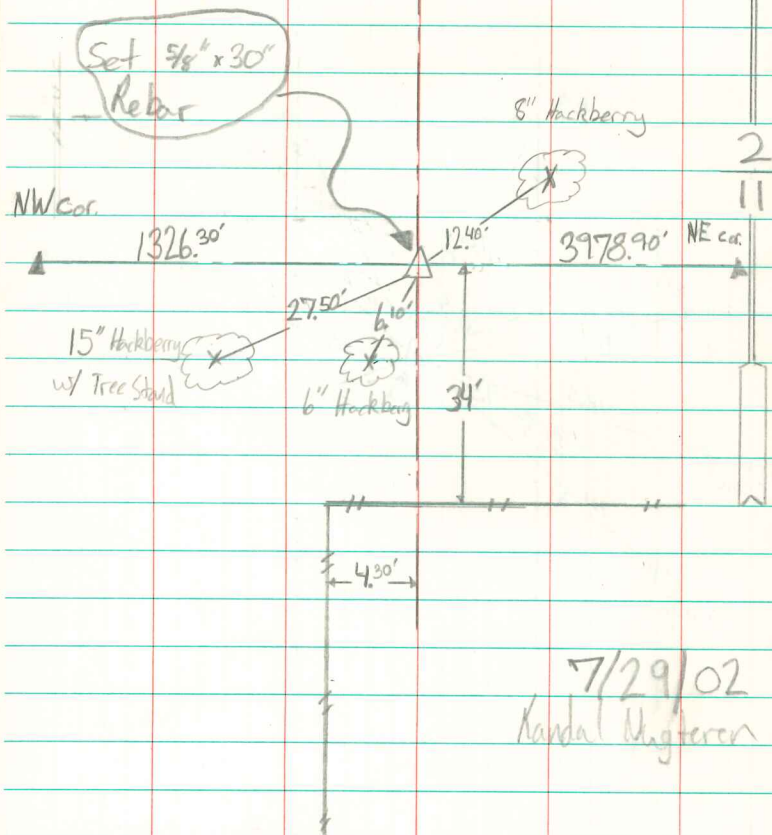 Set 5/8" x 30"
Rebar
8" Hackberry
2
11
NW cor.
1326.30'
12.40'
3978.90'
NE cor.
27.50'
6.10'
15" Hackberry
w/ Tree Stand
6" Hackberry
34'
4.30'
7/29/02
Nugteren